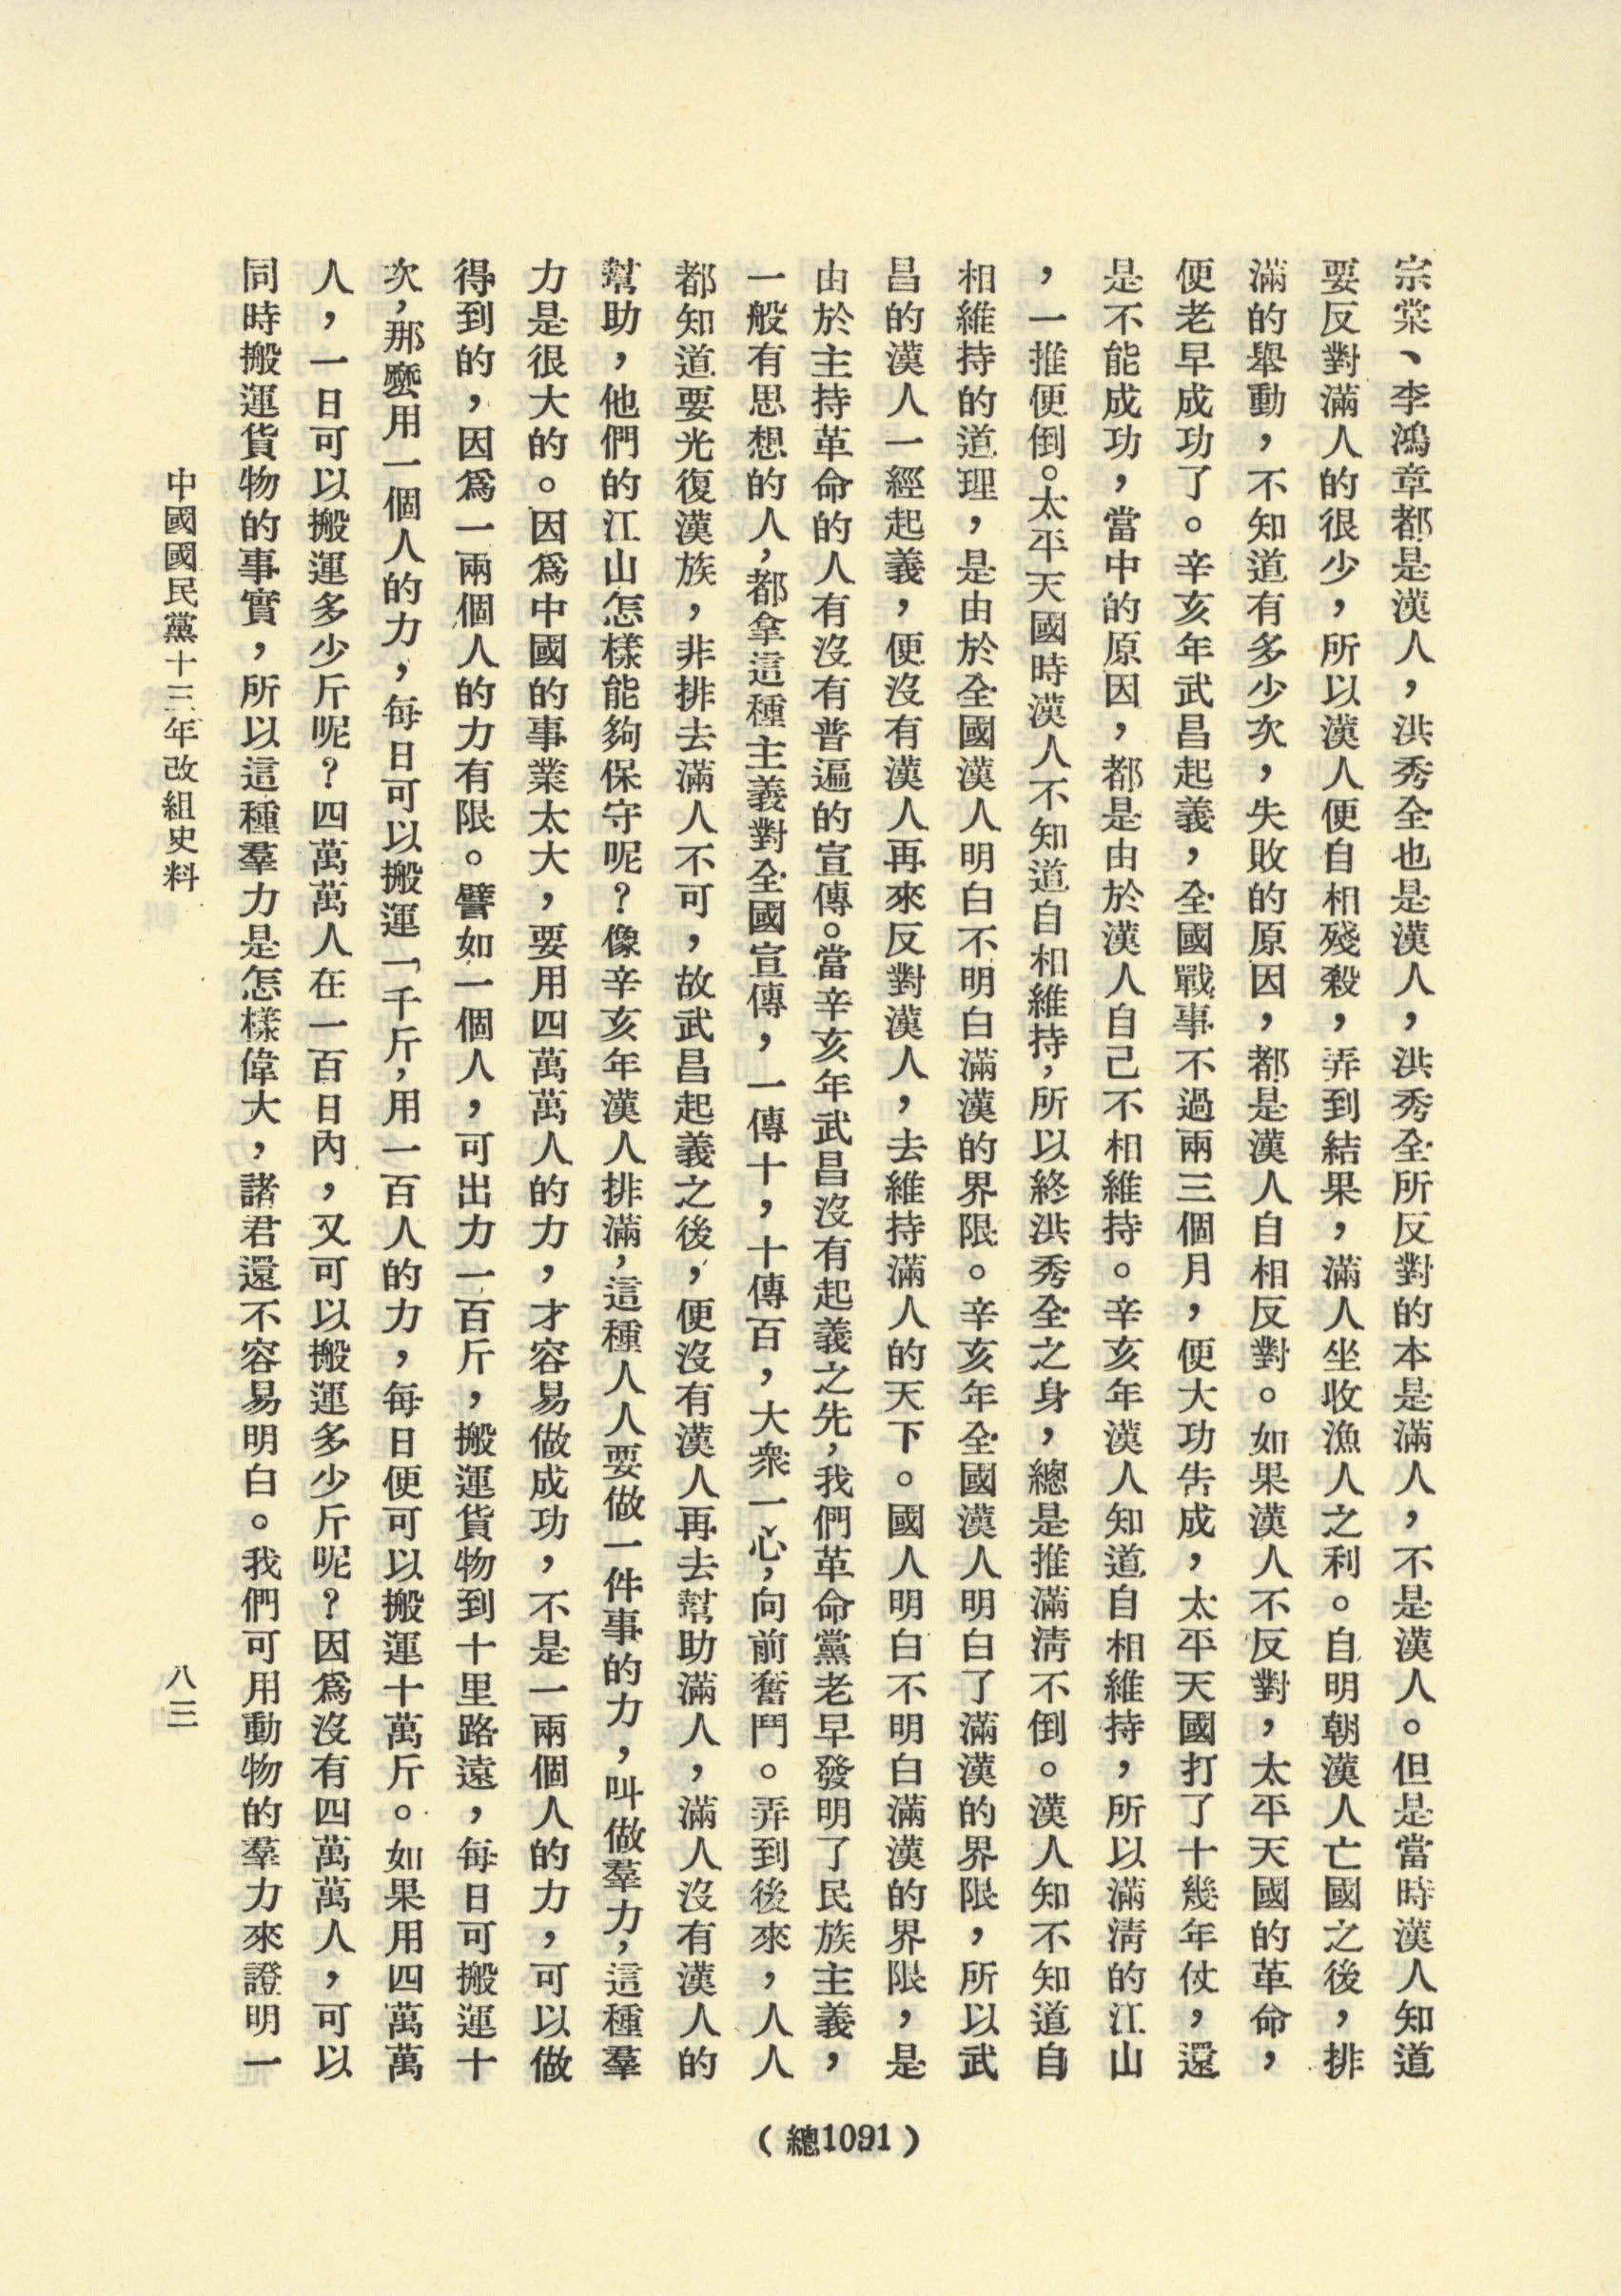 宗棠、李鴻章都是漢人，洪秀全也是漢人，洪秀全所反對的本是滿人，不是漢人。但是當時漢人知道
要反對滿人的很少，所以漢人便自相殘殺，弄到結果，滿人坐收漁人之利。自明朝漢人亡國之後，排
滿的舉動，不知道有多少次，失敗的原因，都是漢人自相反對。如果漢人不反對，太平天國的革命，
便老早成功了。辛亥年武昌起義，全國戰事不過兩三個月，便大功告成，太平天國打了十幾年仗，還
是不能成功，當中的原因，都是由於漢人自己不相維持。辛亥年漢人知道自相維持，所以滿清的江山
，一推便倒。太平天國時漢人不知道自相維持，所以終洪秀全之身，總是推滿清不倒。漢人知不知道自
相維持的道理，是由於全國漢人明白不明白滿漢的界限。辛亥年全國漢人明白了滿漢的界限，所以武
昌的漢人一經起義，便沒有漢人再來反對漢人，去維持滿人的天下。國人明白不明白滿漢的界限，是
由於主持革命的人有沒有普遍的宣傳。當辛亥年武昌沒有起義之先，我們革命黨老早發明了民族主義，
一般有思想的人，都拿這種主義對全國宣傳，一傳十，十傳百，大衆一心，向前奮鬥。弄到後來，人人
都知道要光復漢族，非排去滿人不可，故武昌起義之後，便沒有漢人再去幫助滿人，滿人沒有漢人的
幫助，他們的江山怎樣能夠保守呢？像辛亥年漢人排滿，這種人人要做一件事的力，叫做羣力，這種羣
力是很大的。因爲中國的事業太大，要用四萬萬人的力，才容易做成功，不是一兩個人的力，可以做
得到的，因爲一兩個人的力有限。譬如一個人，可出力一百斤，搬運貨物到十里路遠，每日可搬運十
次，那麼用一個人的力，每日可以搬運一千斤，用一百人的力，每日便可以搬運十萬斤。如果用四萬萬
人，一日可以搬運多少斤呢？四萬萬人在一百日內，又可以搬運多少斤呢？因爲沒有四萬萬人，可以
同時搬運貨物的事實，所以這種羣力是怎樣偉大，諸君還不容易明白。我們可用動物的羣力來證明一
中國國民黨十三年改組史料
八三
（總1091）